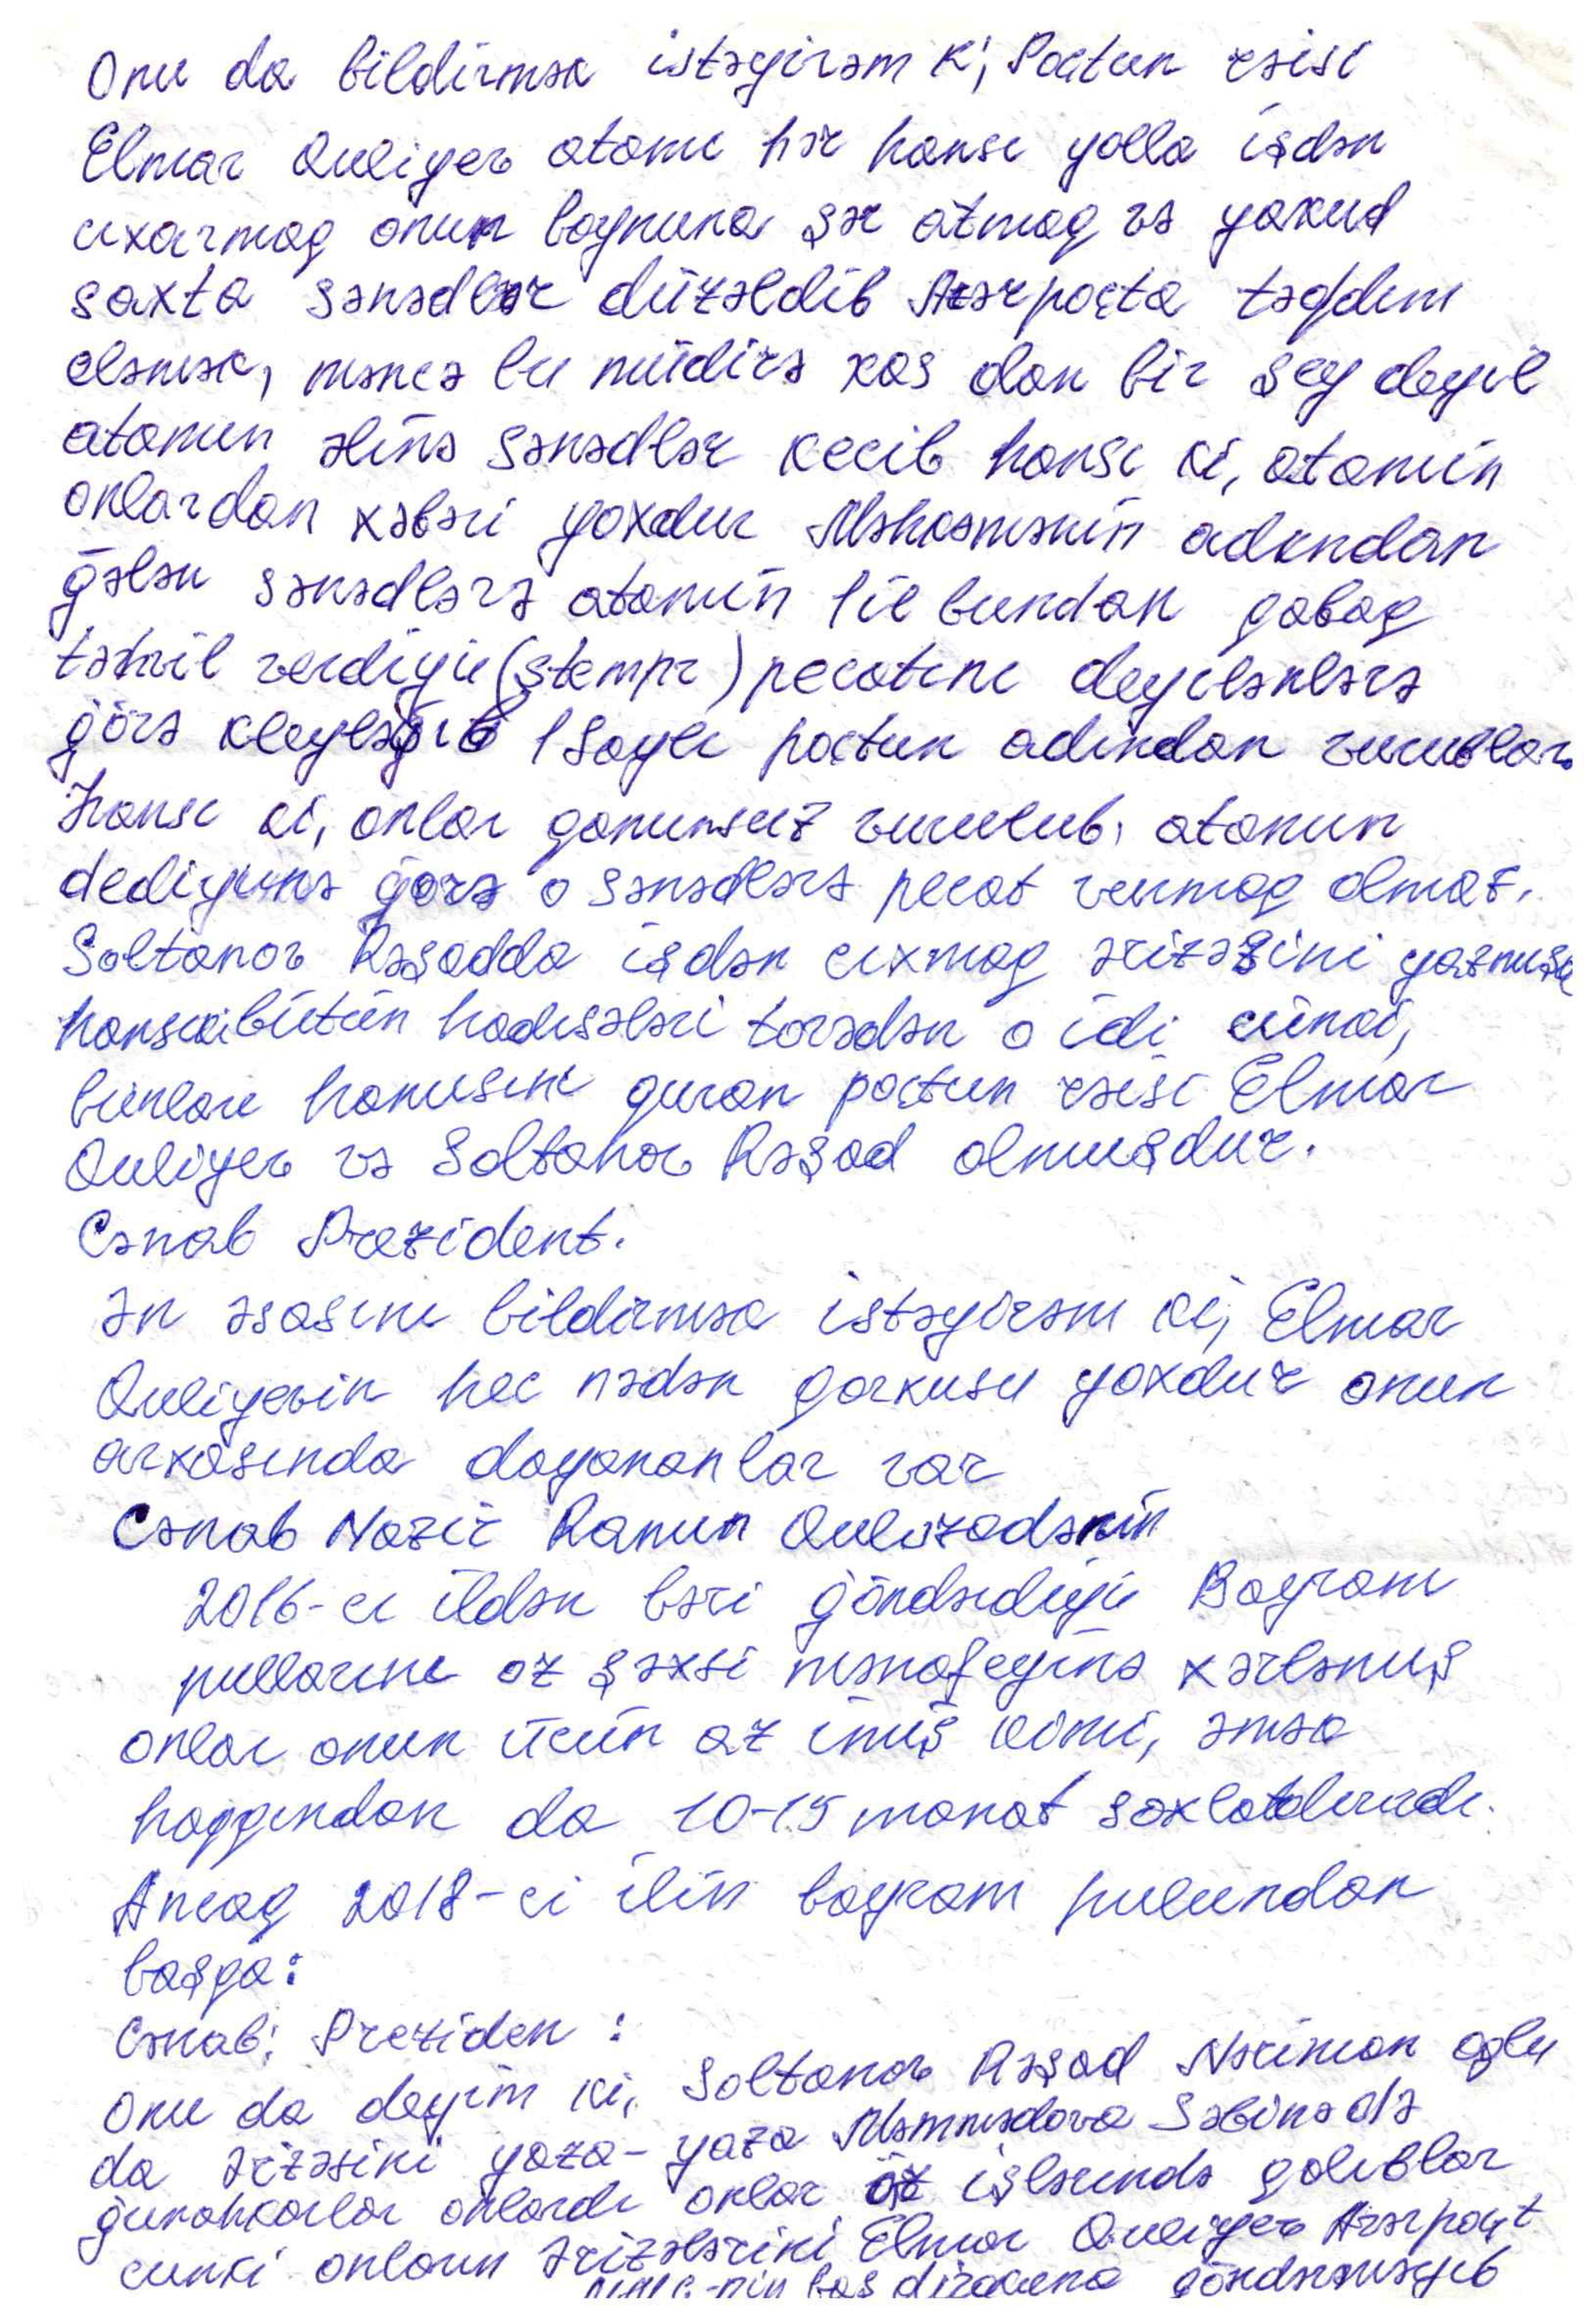 Onu da bildirmək istəyirəm ki, Poçtun rəisi
Elmar Quliyev atamı hər hansı yolla işdən
cıxarmag onun boynuna şər atmag və yaxud
saxta sənədlər düzəldib Azərpoçta təqdim
eləmək, məncə bu müdirə xas olan bir şey deyil
atamın əlinə sənədlər kecib hansı ki, atamın
onlardan xəbəri yoxdur Məhkəmənin adından
gələn sənədlərə atamın 1 il bundan qabag
təhvil verdiyi (ştempr) pecatını deyilənlərə
görə kleyləyib 1 saylı poçtun adından vurublar.
Hansı ki, onlar qanunsuz vurulub, atamın
dediyinə görə o sənədlərə pecat vurmag olmaz.
Soltanov Rəşadda işdən cıxmag ərizəsini yazmışdı
hansıki bütün hadisələri törədən o idi cünki,
bunları hamısını quran poçtun rəisi Elmar
Quliyev və Soltanov Rəşad olmuşdur.
Cənab Prezident.
Ən əsasını bildirmək istəyirəm ki, Elmar
Quliyevin hec nədən qorxusu yoxdur onun
arxasında dayananlar var
Cənab Nazir Ramin Quluzadənin
2016-cı ildən bəri göndərdiyi Bayram
pullarını öz şəxsi mənafeyinə xərləmiş
onlar onun ücün az imiş kimi, əmək
haqqından da 10-15 manat saxlatdırırdı.
Ancag 2018-ci ilin bayram pulundan
başqa:
Cənab: Preziden :
Onu da deyim ki, Soltanov Rəşad Nəriman oglu
da ərizəsini yaza-yaza Məmmədova Səbinə də
günahkarlar onlardı onlar öz işlərində qalıblar
cunki onların ərizələrini Elmar Quliyev Azərpoçt
MMC-nin baş direktoruna göndərməyib